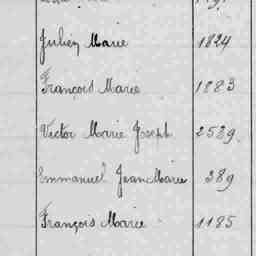 Julien Marie 1824
François Marie 1883
Victor Marie Joseph 2589
Emmanuel Jean Marie 389
François Marie 1185